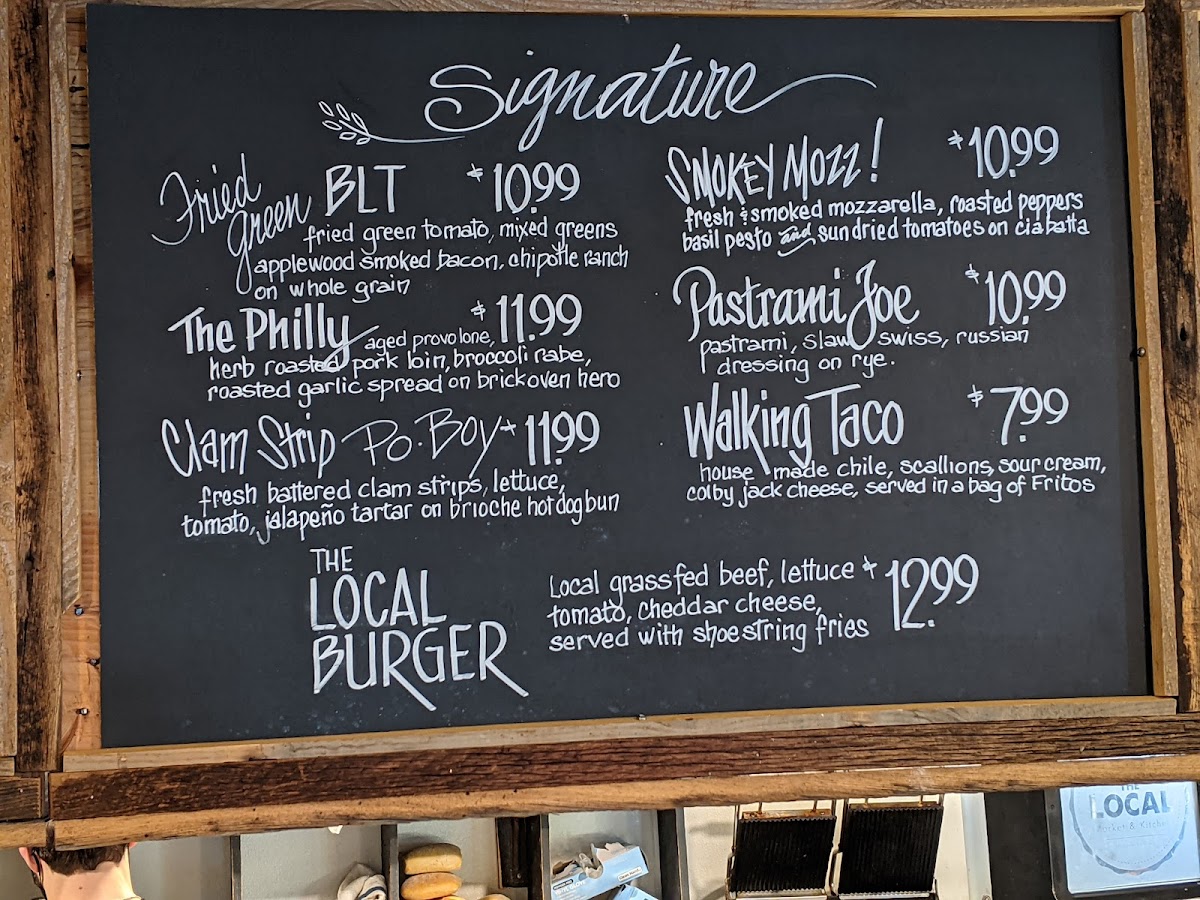 Signature
Fried green BLT $10.99
fried green tomato, mixed greens
applewood smoked bacon, chipotle ranch
on whole grain
The Philly aged provolone, $11.99
herb roasted pork loin, broccoli rabe,
roasted garlic spread on brick oven hero
Clam Strip Po·Boy $11.99
fresh battered clam strips, lettuce,
tomato, jalapeño tartar on brioche hot dog bun
SMOKEY MOZZ! $10.99
fresh & smoked mozzarella, roasted peppers
basil pesto and sundried tomatoes on ciabatta
Pastrami Joe $10.99
pastrami, slaw swiss, russian
dressing on rye.
Walking Taco $7.99
house made chile, scallions, sour cream,
colby jack cheese, served in a bag of Fritos
THE
LOCAL
BURGER
Local grassfed beef, lettuce $12.99
tomato, cheddar cheese,
served with shoestring fries
THE
LOCAL
Market & Kitchen